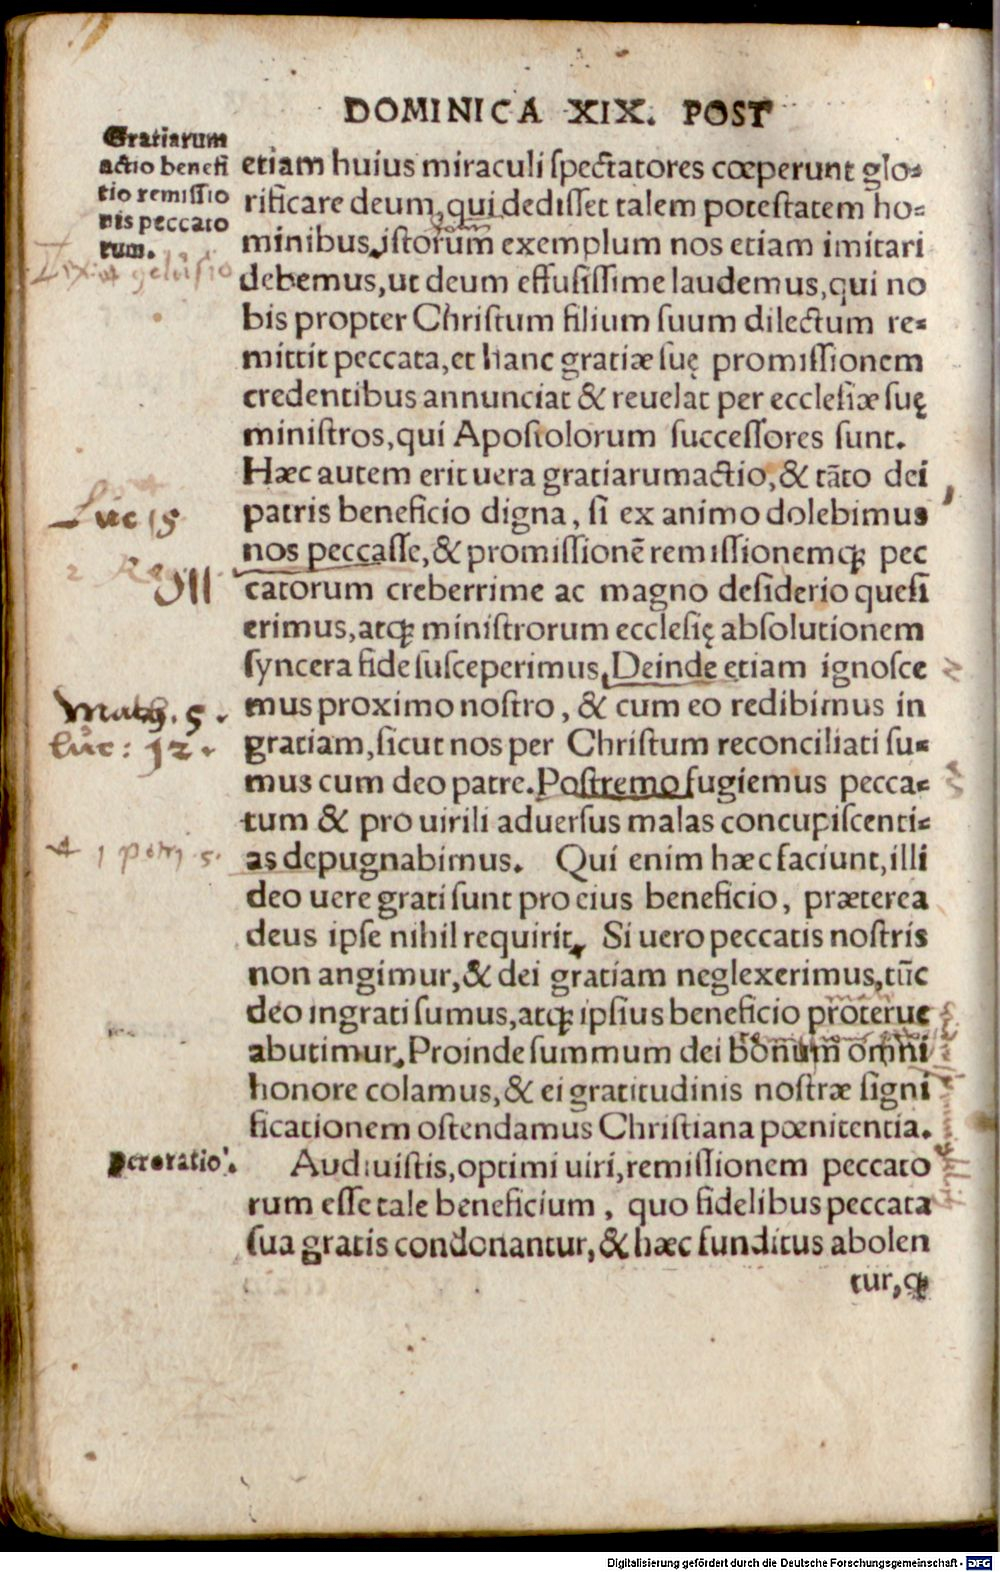 DOMINICA XIX. POST
Gratiarum
actio benefi
tio remissio
nis peccato
rum.
etiam huius miraculi spectatores cœperunt glo-
rificare deum, qui dedisset talem potestatem ho-
minibus, istorum exemplum nos etiam imitari
debemus, ut deum effusissime laudemus, qui no
bis propter Christum filium suum dilectum re-
mittit peccata, et hanc gratiæ suę promissionem
credentibus annunciat & reuelat per ecclesiæ suę
ministros, qui Apostolorum successores sunt.
Hæc autem erit uera gratiarumactio, & tāto dei
patris beneficio digna, si ex animo dolebimus
nos peccasse, & promissionē remissionemq; pec
catorum creberrime ac magno desiderio quesi
erimus, atq; ministrorum ecclesię absolutionem
syncera fide susceperimus, Deinde etiam ignosce
mus proximo nostro, & cum eo redibimus in
gratiam, sicut nos per Christum reconciliati su-
mus cum deo patre. Postremo fugiemus pecca-
tum & pro uirili aduersus malas concupiscenti-
as depugnabimus. Qui enim hæc faciunt, illi
deo uere grati sunt pro eius beneficio, præterea
deus ipse nihil requirit, Si uero peccatis nostris
non angimur, & dei gratiam neglexerimus, tūc
deo ingrati sumus, atq; ipsius beneficio proterue
abutimur, Proinde summum dei bonum omni
honore colamus, & ei gratitudinis nostræ signi
ficationem ostendamus Christiana pœnitentia.
Audiuistis, optimi uiri, remissionem peccato
rum esse tale beneficium, quo fidelibus peccata
sua gratis condonantur, & hæc funditus abolen
tur, q;
Luc 15
2 Reg
Math. 5.
luc: 12.
1 petri 5.
Peroratio.
Digitalisierung gefördert durch die Deutsche Forschungsgemeinschaft - DFG